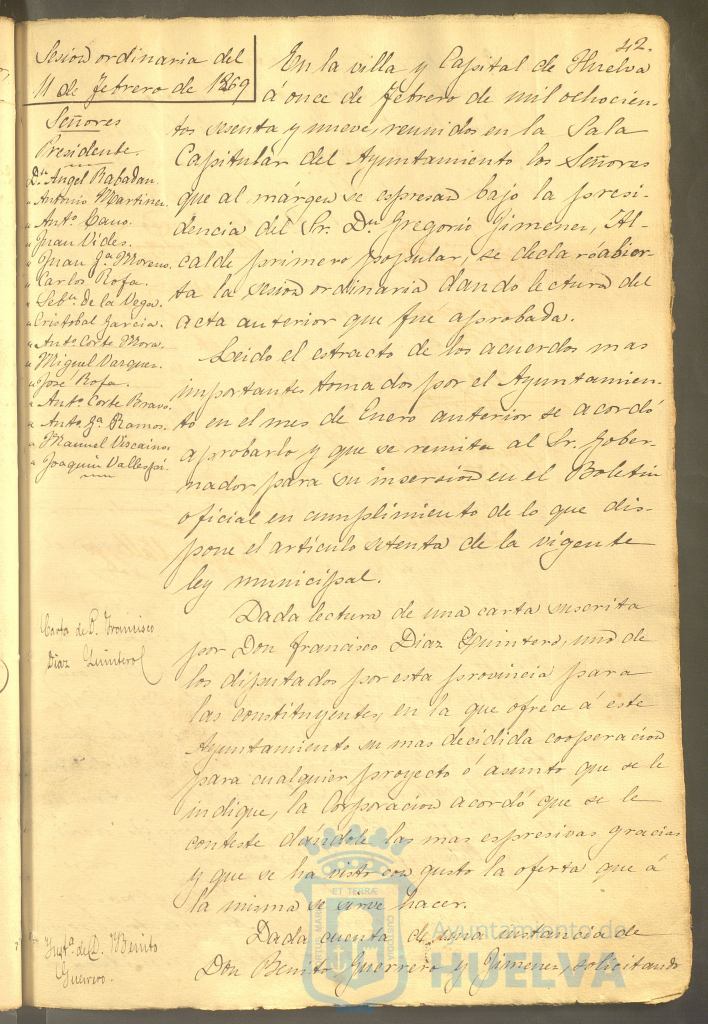 42.
Sesion ordinaria del
11 de Febrero de 1869
Señores
Presidente.
Dn Angel Rabadan.
" Antonio Martinez.
" Anto. Cano.
" Juan Vides.
" Juan Ja. Moreno.
" Carlos Rofa.
" Sebn. de la Vega.
" Cristobal Garcia.
" Anto. Corte Mora.
" Miguel Vazquez.
" José Rofa.
" Anto. Corte Bravo.
" Anto. Ja. Ramos.
" Manuel Viscaino.
" Joaquin Vallespi.
En la villa y Capital de Huelva
á once de Febrero de mil ochocien-
tos sesenta y nueve, reunidos en la Sala
Capitular del Ayuntamiento los Señores
que al márgen se espresan bajo la presi-
dencia del Sr. Dn Gregorio Jimenez, Al-
calde primero popular, se declaró abier-
ta la sesion ordinaria dando lectura del
acta anterior que fué aprobada.
Leido el estracto de los acuerdos mas
importantes tomados por el Ayuntamien-
to en el mes de Enero anterior se acordó
aprobarlo y que se remita al Sr. Gober-
nador para su insercion en el Boletin
oficial en cumplimiento de lo que dis-
pone el artículo setenta de la vigente
ley municipal.
Carta de D. Francisco
Diaz Quintero
Dada lectura de una carta suscrita
por Don Francisco Diaz Quintero, uno de
los diputados por esta provincia para
las constituyentes, en la que ofrece á este
Ayuntamiento su mas decidida cooperacion
para cualquier proyecto ó asunto que se le
indique, la Corporacion acordó que se le
conteste dandole las mas espresivas gracias
y que se ha visto con gusto la oferta que á
la misma se sirve hacer.
Insta. de D. Benito
Guerrero.
Dada cuenta de una instancia de
Don Benito Guerrero y Jimenez, solicitando
Ayuntamiento de
HUELVA